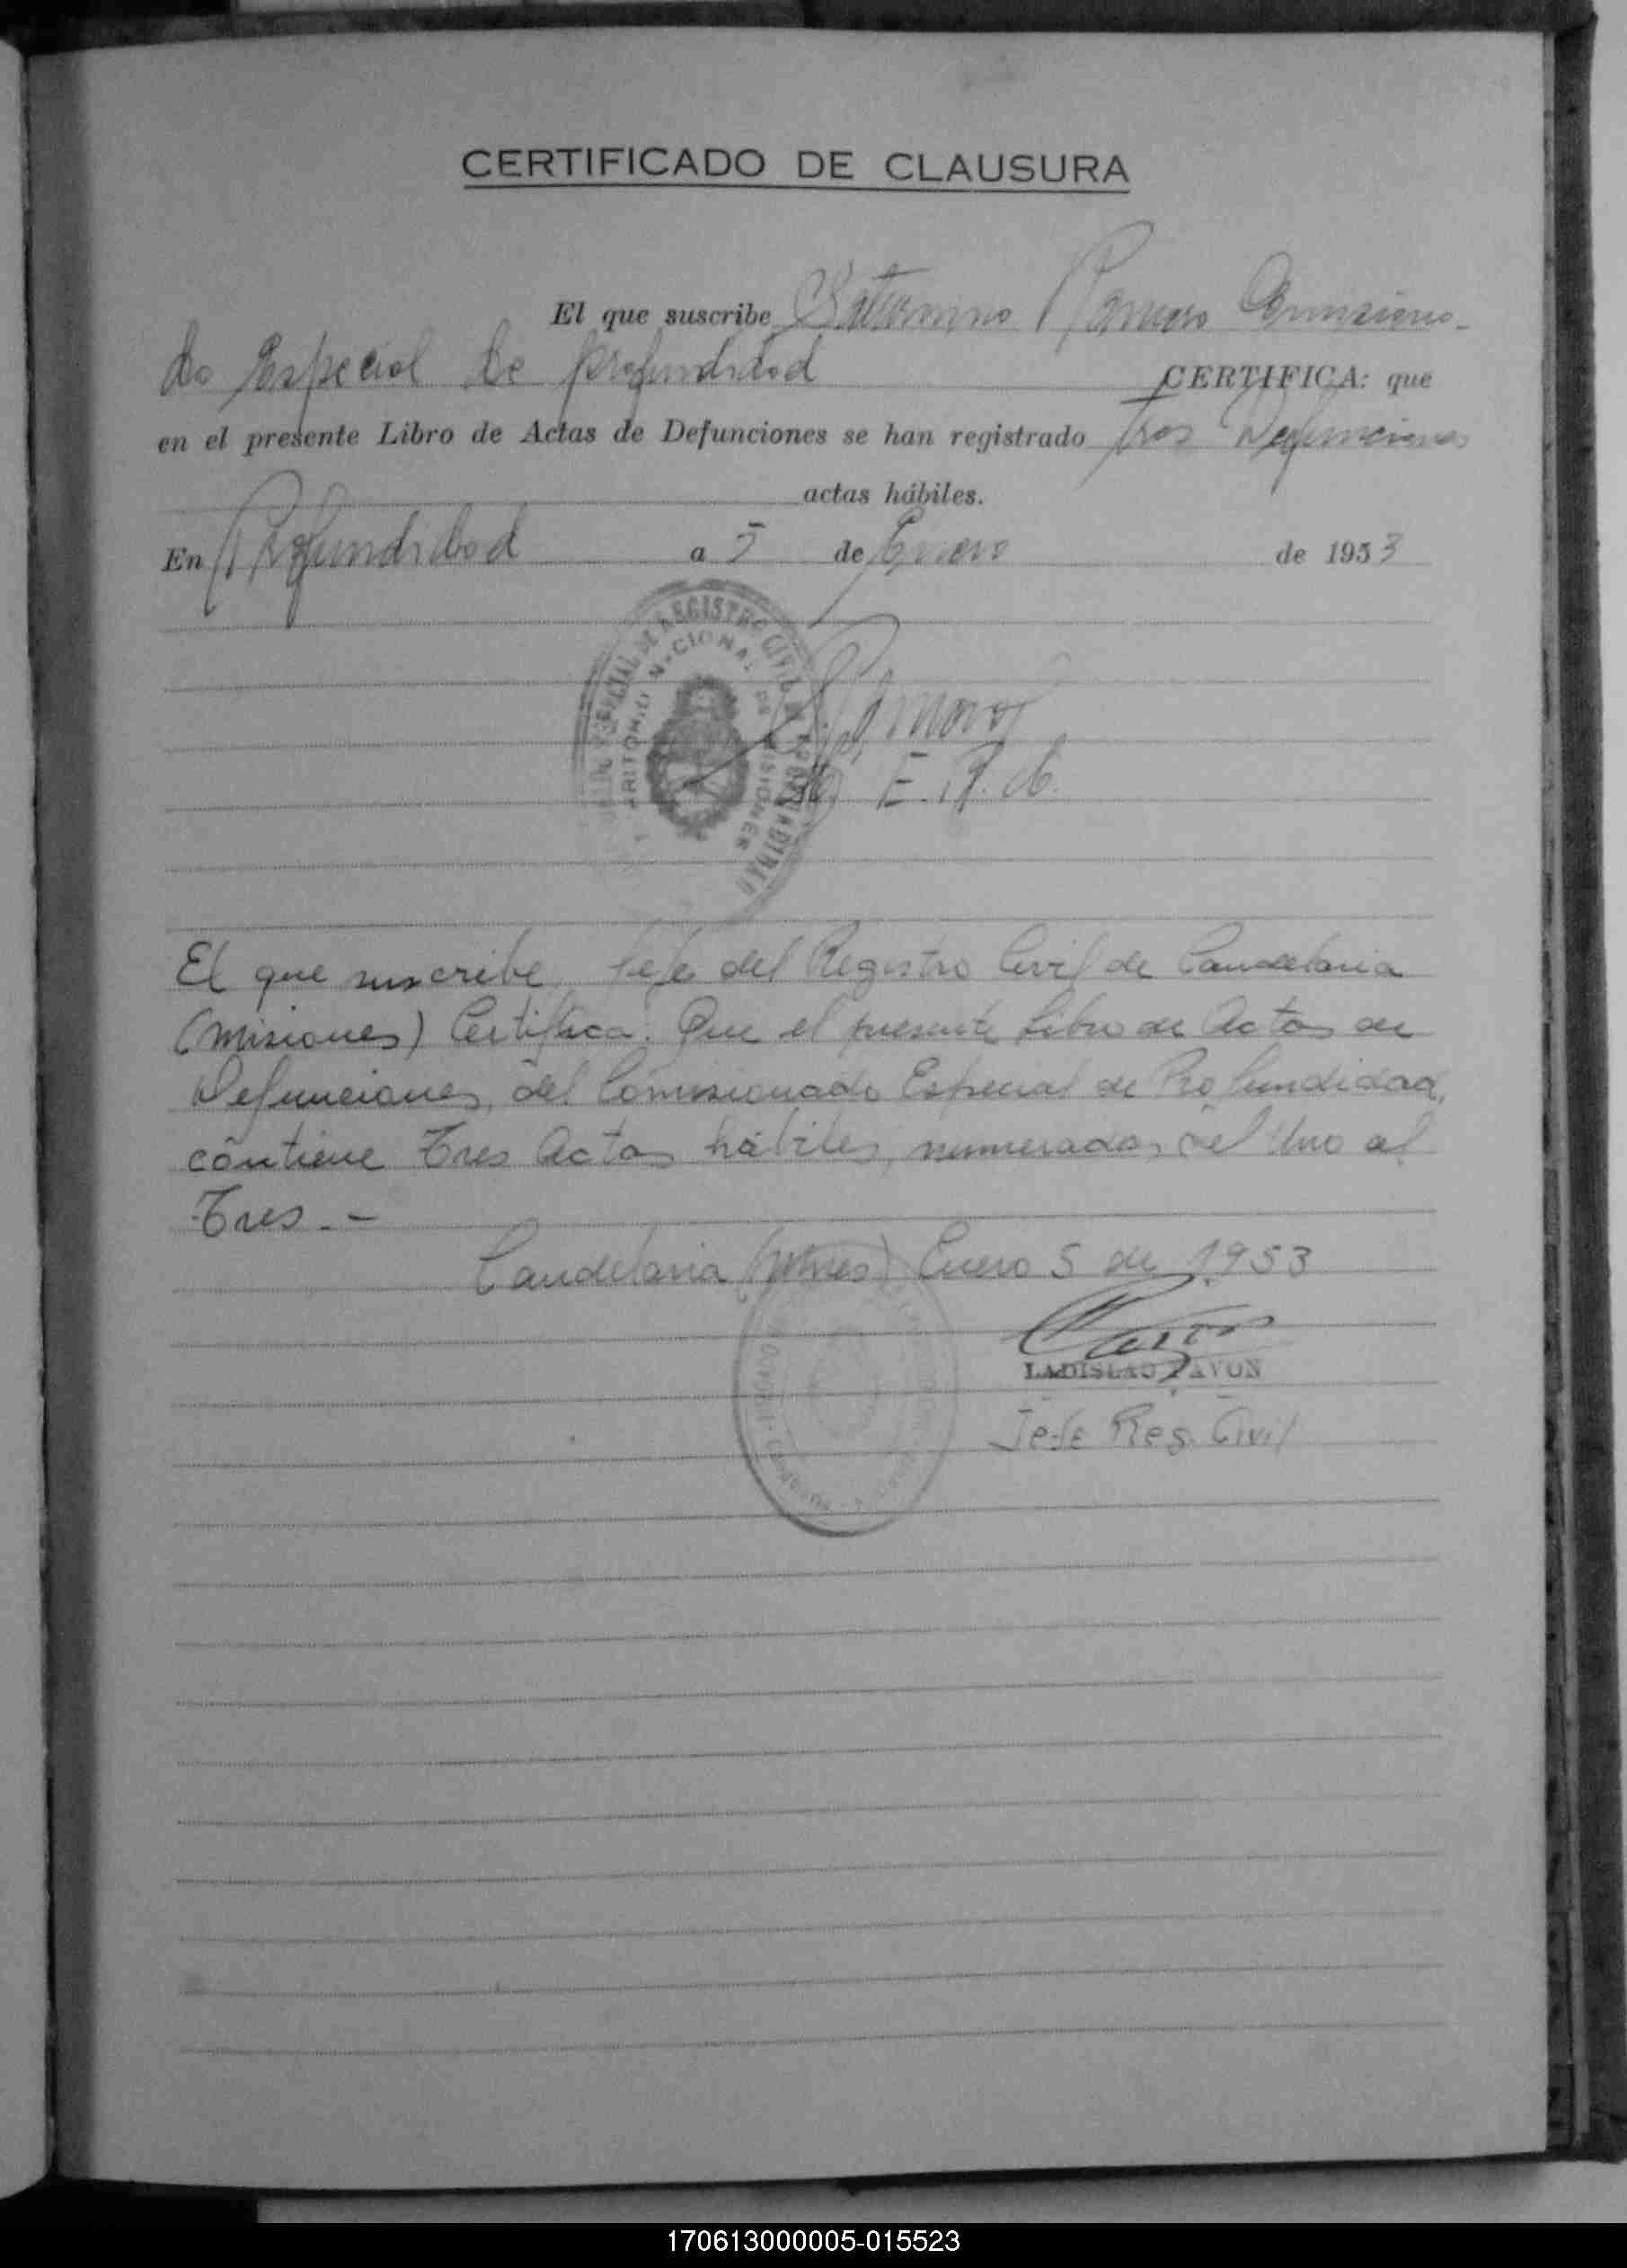 CERTIFICADO DE CLAUSURA
El que suscribe Saturnino Romero Comisiona-
do Especial De profundidad CERTIFICA: que
en el presente Libro de Actas de Defunciones se han registrado tres Defunciones
actas hábiles.
En Profundidad a 5 de Enero de 1953
REGISTRO CIVIL
E.
El que suscribe, Jefe del Registro Civil de Candelaria
(Misiones) Certifica: Que el presente Libro de Actas de
Defunciones, del Comisionado Especial de Profundidad,
contiene Tres Actas hábiles, numeradas del Uno al
Tres.-
Candelaria (Mnes) Enero 5 de 1953
LADISLAO PAVON
Jefe Reg. Civil
170613000005-015523